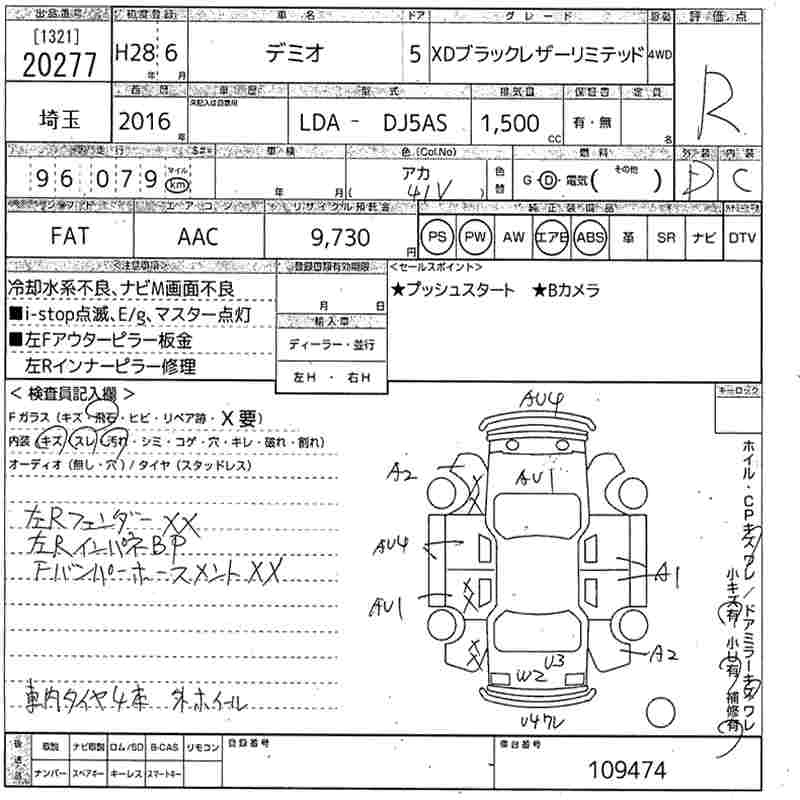 出品番号 初度登録 車名 ドア グレード 評価点
[1321]
20277 H28 6 デミオ 5 XDブラックレザーリミテッド 4WD R
年 月
車歴 型式 排気量 保証書 定員
未記入は自家用
埼玉 2016 年 LDA - DJ5AS 1,500 CC 有・無 名
走行 車検 色(Col.No) 燃料 外装 内装
96079 マイル km 年 月 アカ ( 41V ) 色替 G・D・電気( その他 ) D C
シフト エアコン リサイクル預託金 純正装備品
FAT AAC 9,730 円 PS PW AW エアB ABS 革 SR ナビ DTV
<注意事項> 登録書類有効期限 <セールスポイント>
冷却水系不良、ナビM画面不良 ★プッシュスタート ★Bカメラ
■i-stop点滅、E/g、マスター点灯 月 日
■左Fアウターピラー板金 輸入車
左Rインナーピラー修理 ディーラー・並行
左H ・ 右H
<検査員記入欄> キーロック
Fガラス(キズ・飛石・ヒビ・リペア跡・X要)
内装(キズ・スレ・汚れ・シミ・コゲ・穴・キレ・破れ・割れ)
オーディオ(無し・穴)/タイヤ(スタッドレス)
左Rフェンダー XX
左Rインパネ BP
Fバンパーホースメント XX
車内タイヤ4本 外ホイール
AU4
A2 AU1
XX
AU4
AU1 XX A1
XX A2
U3
W2
U4ワレ
ホイル・CPキズワレ/ドアミラーキズワレ
小キズ有 小U有 補修有
後送品 取説 ナビ取説 ロム/SD B-CAS リモコン 登録番号 車台番号
ナンバー スペアキー キーレス スマートキー 109474